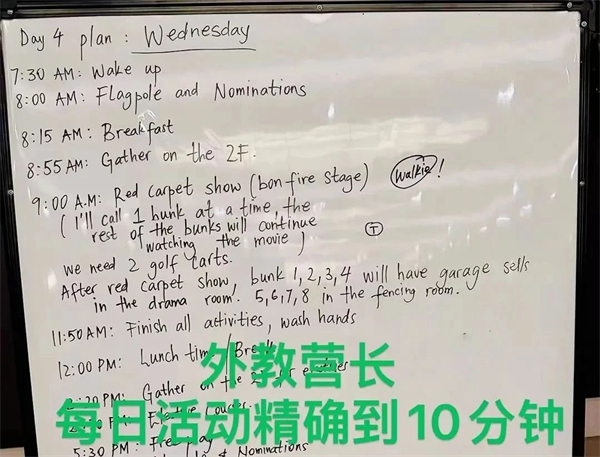 Day 4 plan : Wednesday
7:30 AM: Wake up
8:00 AM: Flagpole and Nominations
8:15 AM: Breakfast
8:55 AM: Gather on the 2F.
9:00 A.M: Red carpet show (bon fire stage) Walkie!
( I'll call 1 bunk at a time, the
rest of the bunks will continue
watching the movie) T
we need 2 golf carts.
After red carpet show, bunk 1,2,3,4 will have garage sells
in the drama room. 5,6,7,8 in the fencing room.
11:50 AM: Finish all activities, wash hands
12:00 PM: Lunch time / Break
外教营长
:20 PM: Gather on the
每日活动精确到10分钟
5:30 PM: Free
& Nominations